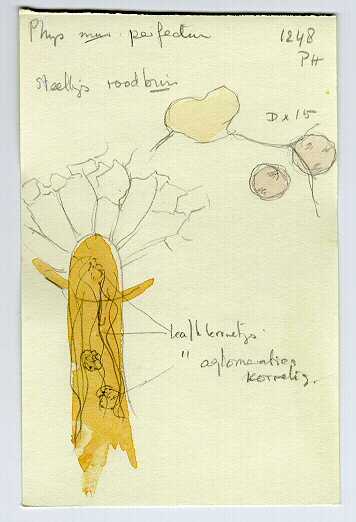 Phys mur. perfectum
1248
PH
steeltjes roodbruin
D x 15
kalkkorreltjes
" aglomeraties
korrelig.